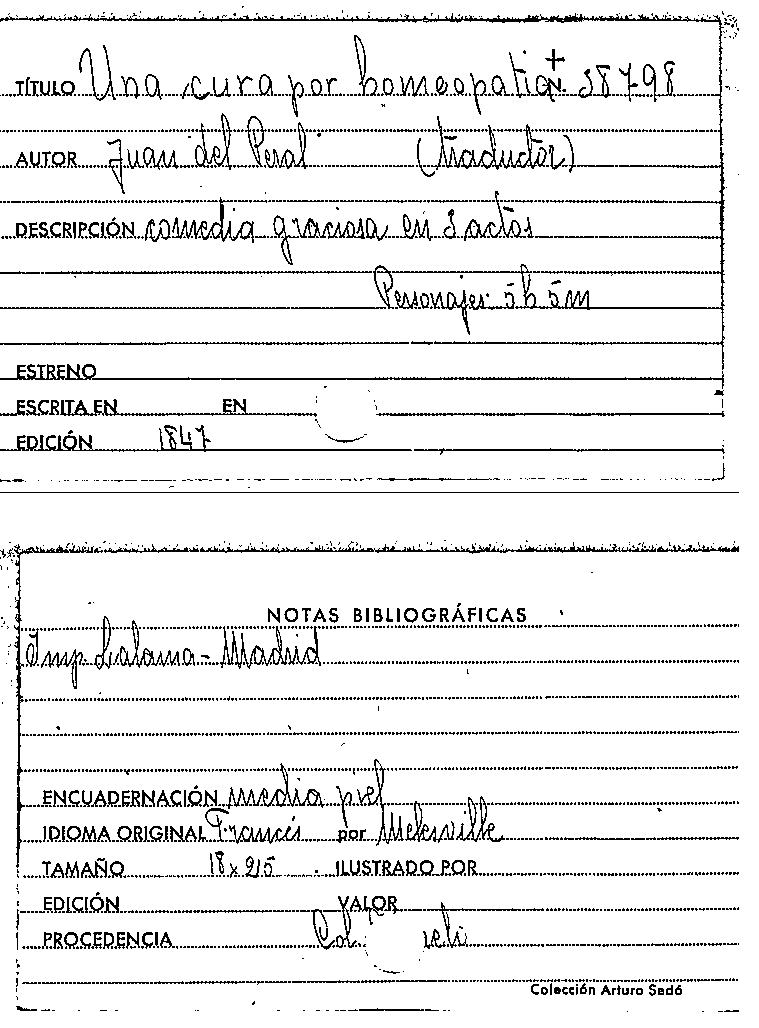 TÍTULO Una cura por homeopatia + N. 38798
AUTOR Juan del Peral (traductor)
DESCRIPCIÓN comedia graciosa en 3 actos
Personajes: 5h 5m
ESTRENO
ESCRITA EN EN
EDICIÓN 1847
NOTAS BIBLIOGRÁFICAS
Imp Lalama - Madrid
ENCUADERNACIÓN media piel
IDIOMA ORIGINAL Francés por Melesville
TAMAÑO ILUSTRADO POR
EDICIÓN VALOR
PROCEDENCIA Col.
Colección Arturo Sedó